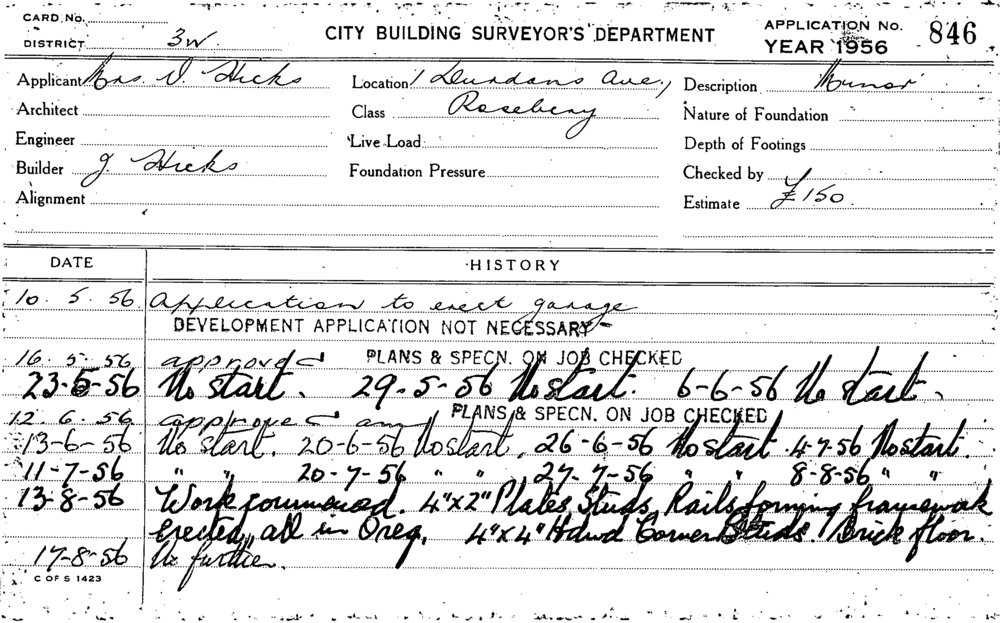 CARD No.
DISTRICT 3W
CITY BUILDING SURVEYOR'S DEPARTMENT
APPLICATION No. 846
YEAR 1956
Applicant Mrs. V. Hicks
Location 1 Dundans Ave.,
Description Minor
Architect
Class Rosebery
Nature of Foundation
Engineer
Live Load
Depth of Footings
Builder J. Hicks
Foundation Pressure
Checked by
Alignment
Estimate £150
DATE HISTORY
10.5.56 Application to erect garage
DEVELOPMENT APPLICATION NOT NECESSARY
16.5.56 approved PLANS & SPECN. ON JOB CHECKED
23-5-56 No start. 29-5-56 No start. 6-6-56 No start.
12.6.56 approved PLANS & SPECN. ON JOB CHECKED
13-6-56 No start. 20-6-56 No start. 26-6-56 No start 4-7-56 No start.
11-7-56 " " 20-7-56 " " 27-7-56 " " 8-8-56 " "
13-8-56 Work commenced. 4"x2" Plates, Studs, Rails forming framework
erected, all in Oreg. 4"x4" Hdwd Corner Studs. Brick floor.
17-8-56 No further.
C OF S 1423